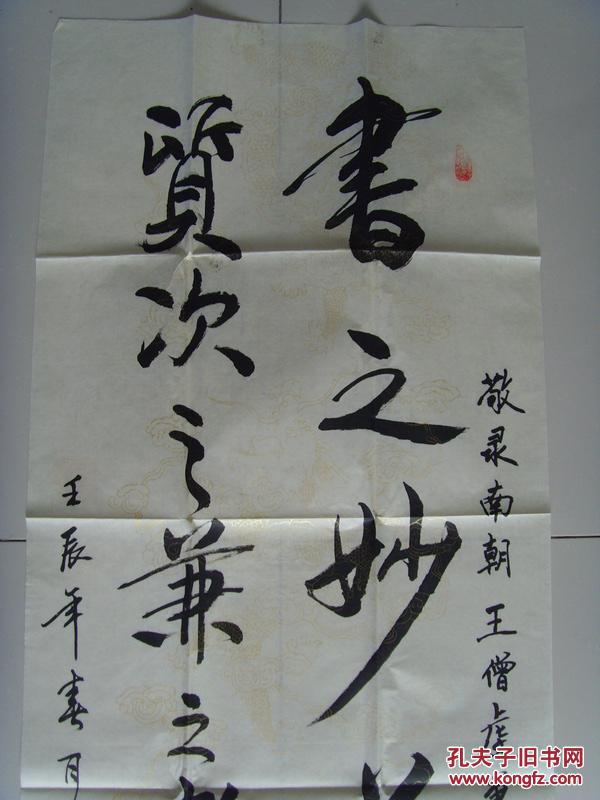 敬录南朝王僧虔
书之妙
質次之兼之
壬辰年春月
孔夫子旧书网
www.kongfz.com